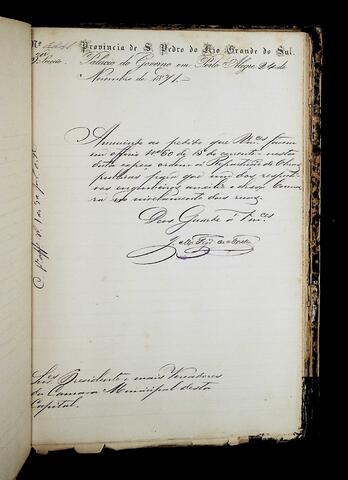 Nº
Provincia de S. Pedro do Rio Grande do Sul.
Palacio do Governo em Porto Alegre 24 de
Novembro de 1871.
Annuindo ao pedido que Vm.ces fazem
em officio nº 60 de 15 do corrente, nesta
data expeço ordem á Repartição de Obras
publicas para que um dos respecti-
vos engenheiros auxilie a essa Cama-
ra no nivelamento das ruas.
Deos Guarde á Vm.ces
Snres Presidente e mais Vereadores
da Camara Municipal desta
Capital.